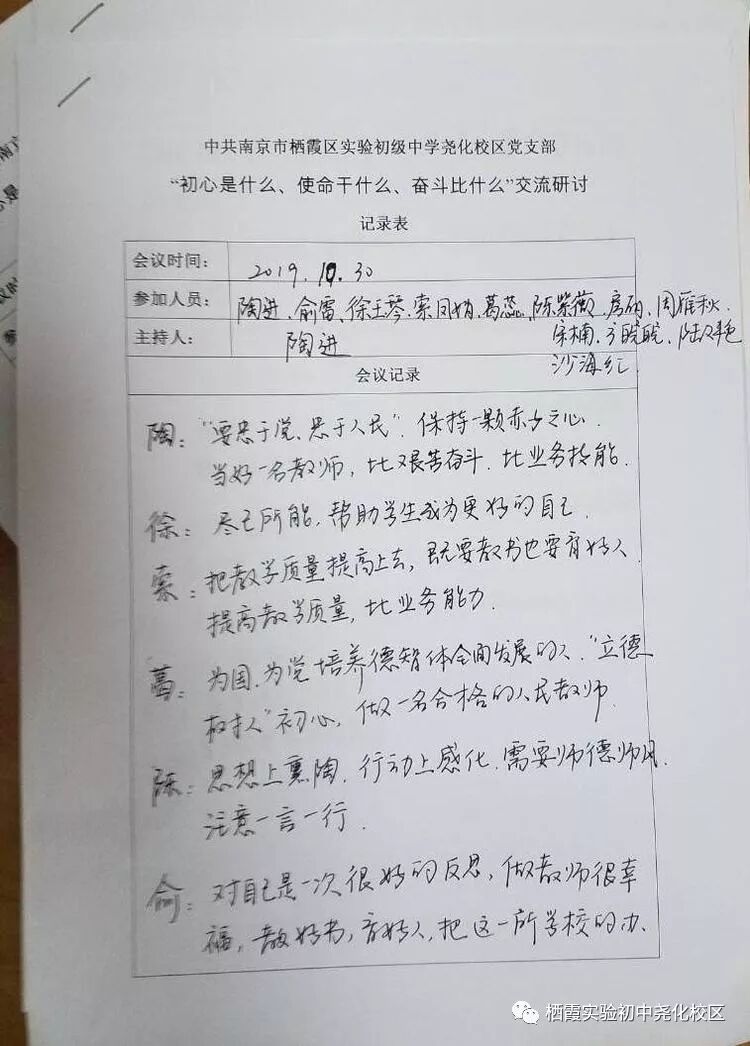 中共南京市栖霞区实验初级中学尧化校区党支部
“初心是什么、使命干什么、奋斗比什么”交流研讨
记录表
会议时间： 2019.10.30
参加人员： 陶进、俞雷、徐王琴、索凤娟、葛蕊、陈紫薇、房砚、周雁秋
主持人： 陶进 宋楠、方晓晓、陆
沙海红
会议记录
陶：“要忠于党、忠于人民”．保持一颗赤子之心．
当好一名教师，比艰苦奋斗．比业务技能．
徐：尽己所能，帮助学生成为更好的自己．
索：把教学质量提高上去，既要教书也要育好人
提高教学质量，比业务能力．
葛：为国、为党培养德智体全面发展的人．“立德
树人”初心，做一名合格的人民教师
陈：思想上熏陶．行动上感化．需要师德师风．
注意一言一行．
俞：对自己是一次很好的反思，做教师很幸
福，教好书，育好人，把这一所学校的办．
栖霞实验初中尧化校区